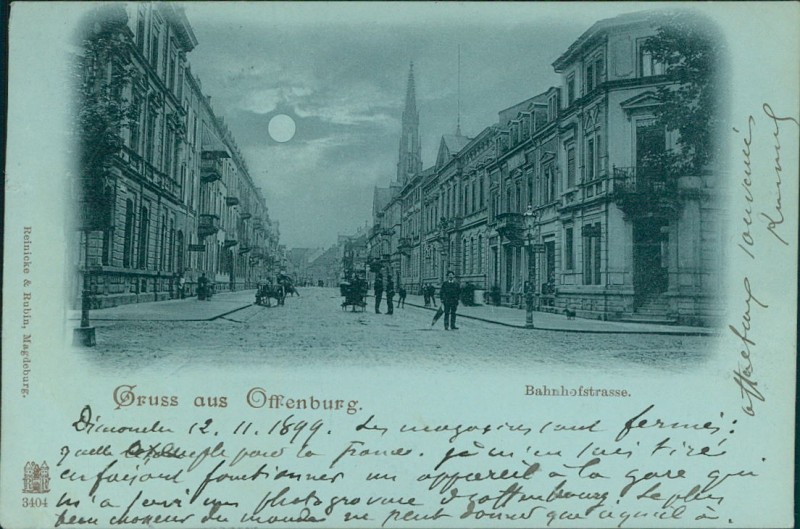 Gruss aus Offenburg.
Bahnhofstrasse.
Reinicke & Rubin, Magdeburg.
3404
Dimanche 12.11.1899. Les magasins sont fermés:
quelle exemple pour la France. je m'en suis tiré
en faisant fonctionner un appareil à la gare qui
m'a servi une photogravure d'offenbourg. Le plus
beau moneur du monde ne peut donner que ce qu'il a.
affectueux souvenir